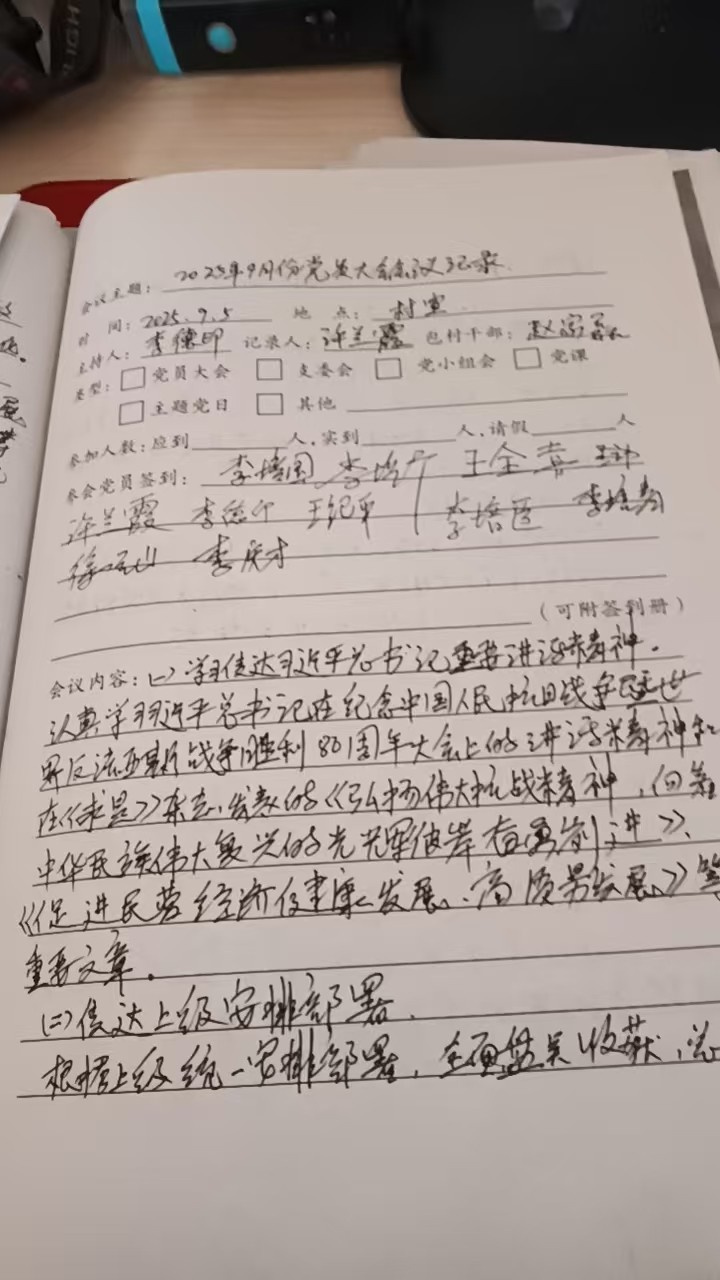 LIGH
会议主题：2025年9月份党员大会会议记录
时 间：2025.9.5 地 点：村室
主持人：李德印 记录人：许兰霞 包村干部：赵
类型：□党员大会 □支委会 □党小组会 □党课
□主题党日 □其他
参加人数：应到 人，实到 人，请假 人
参会党员签到：李培国 李培 王全喜
许兰霞 李德印 王纪平 李培臣 李培
徐 山 李庆才
（可附签到册）
会议内容：(一)学习传达习近平总书记重要讲话精神。
认真学习习近平总书记在纪念中国人民抗日战争暨世
界反法西斯战争胜利80周年大会上的讲话精神和
在《求是》杂志发表的《弘扬伟大抗战精神，向着
中华民族伟大复兴的光辉彼岸奋勇前进》、
《促进民营经济健康发展、高质量发展》等
重要文章。
(二)传达上级安排部署.
根据上级统一安排部署，全面盘点收获，总